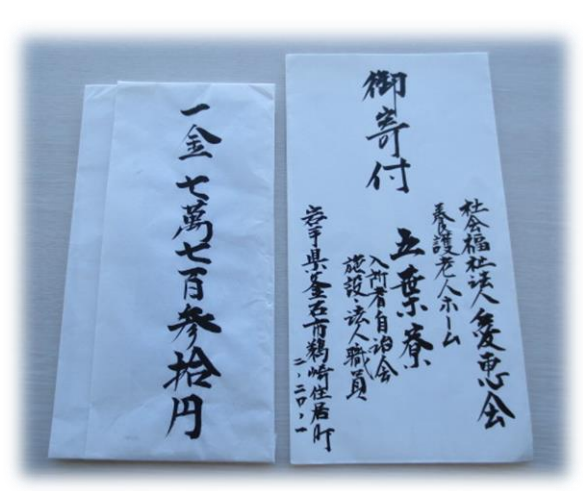 御寄付
社会福祉法人愛恵会
養護老人ホーム
五葉寮
入所者自治会
施設・法人職員
岩手県釜石市鵜崎住居町
二、二〇、一
一金 七萬七百参拾円